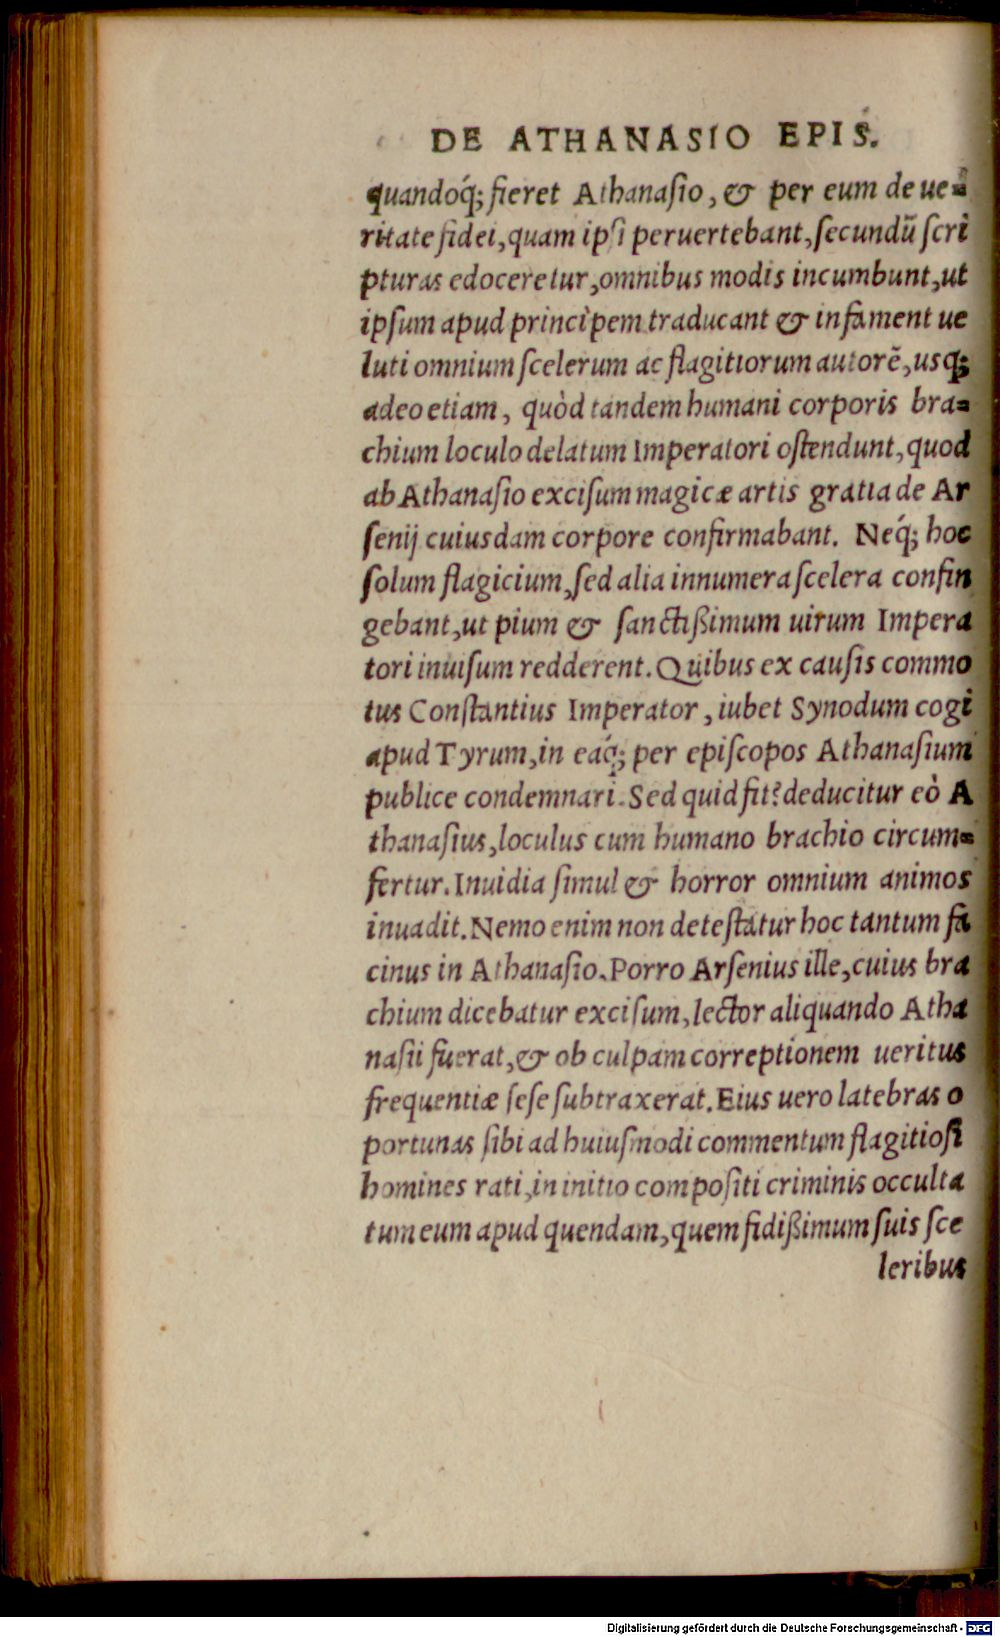 DE ATHANASIO EPIS.
quandoq́; fieret Athanaſio, & per eum de ue-
ritate fidei, quam ipſi peruertebant, ſecundũ ſcri
pturas edoceretur, omnibus modis incumbunt, ut
ipſum apud principem traducant & infament ue
luti omnium ſcelerum ac flagitiorum autorẽ, usq;
adeo etiam, quòd tandem humani corporis bra-
chium loculo delatum Imperatori oſtendunt, quod
ab Athanaſio exciſum magicæ artis gratia de Ar
ſenij cuiusdam corpore confirmabant. Neq́; hoc
ſolum flagicium, ſed alia innumera ſcelera confin
gebant, ut pium & ſanctißimum uirum Impera
tori inuiſum redderent. Quibus ex cauſis commo
tus Conſtantius Imperator, iubet Synodum cogi
apud Tyrum, in eaq́; per epiſcopos Athanaſium
publice condemnari. Sed quid fit? deducitur eò A
thanaſius, loculus cum humano brachio circum-
fertur. Inuidia ſimul & horror omnium animos
inuadit. Nemo enim non deteſtatur hoc tantum fa
cinus in Athanaſio. Porro Arſenius ille, cuius bra
chium dicebatur exciſum, lector aliquando Atha
naſii fuerat, & ob culpam correptionem ueritus
frequentiæ ſeſe ſubtraxerat. Eius uero latebras o
portunas ſibi ad huiuſmodi commentum flagitioſi
homines rati, in initio compoſiti criminis occulta
tum eum apud quendam, quem fidißimum ſuis ſce
leribus
Digitalisierung gefördert durch die Deutsche Forschungsgemeinschaft - DFG